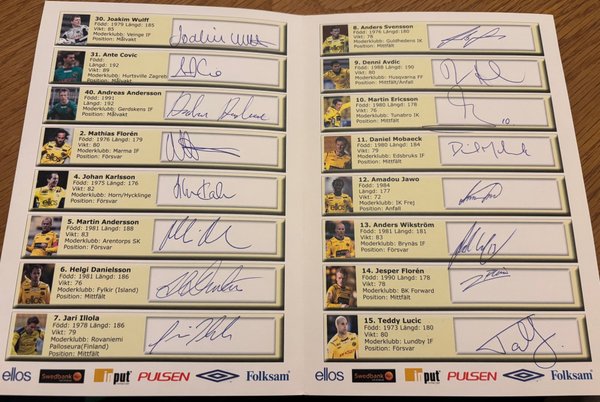 30. Joakim Wulff
Född: 1979 Längd: 185
Vikt: 85
Moderklubb: Veinge IF
Position: Målvakt
31. Ante Covic
Född:
Längd: 192
Vikt: 89
Moderklubb: Hurtsville Zagreb
Position: Målvakt
40. Andreas Andersson
Född: 1991
Längd: 192
Moderklubb: Gerdskens IF
Position: Målvakt
2. Mathias Florén
Född: 1976 Längd: 179
Vikt: 80
Moderklubb: Marma IF
Position: Försvar
4. Johan Karlsson
Född: 1975 Längd: 176
Vikt: 82
Moderklubb: Horn/Hycklinge
Position: Försvar
5. Martin Andersson
Född: 1981 Längd: 188
Vikt: 83
Moderklubb: Arentorps SK
Position: Försvar
6. Helgi Danielsson
Född: 1981 Längd: 186
Vikt: 76
Moderklubb: Fylkir (Island)
Position: Mittfält
7. Jari Illola
Född: 1978 Längd: 186
Vikt: 79
Moderklubb: Rovaniemi
Palloseura(Finland)
Position: Mittfält
ellos Swedbank input PULSEN umbro Folksam
8. Anders Svensson
Född: 1976 Längd: 178
Vikt: 80
Moderklubb: Guldhedens IK
Position: Mittfält
9. Denni Avdic
Född: 1988 Längd: 190
Vikt: 80
Moderklubb: Husqvarna FF
Position: Mittfält/Anfall
10. Martin Ericsson
Född: 1980 Längd: 178
Vikt: 76
Moderklubb: Tunabro IK
Position: Mittfält
10
11. Daniel Mobaeck
Född: 1980 Längd: 184
Vikt: 79
Moderklubb: Edsbruks IF
Position: Mittfält
12. Amadou Jawo
Född: 1984
Längd: 177
Vikt: 72
Moderklubb: IK Frej
Position: Anfall
13. Anders Wikström
Född: 1981 Längd: 181
Vikt: 83
Moderklubb: Brynäs IF
Position: Försvar
14. Jesper Florén
Född: 1990 Längd: 178
Vikt: 78
Moderklubb: BK Forward
Position: Mittfält
15. Teddy Lucic
Född: 1973 Längd: 180
Vikt: 80
Moderklubb: Lundby IF
Position: Försvar
ellos Swedbank input PULSEN umbro Folksam